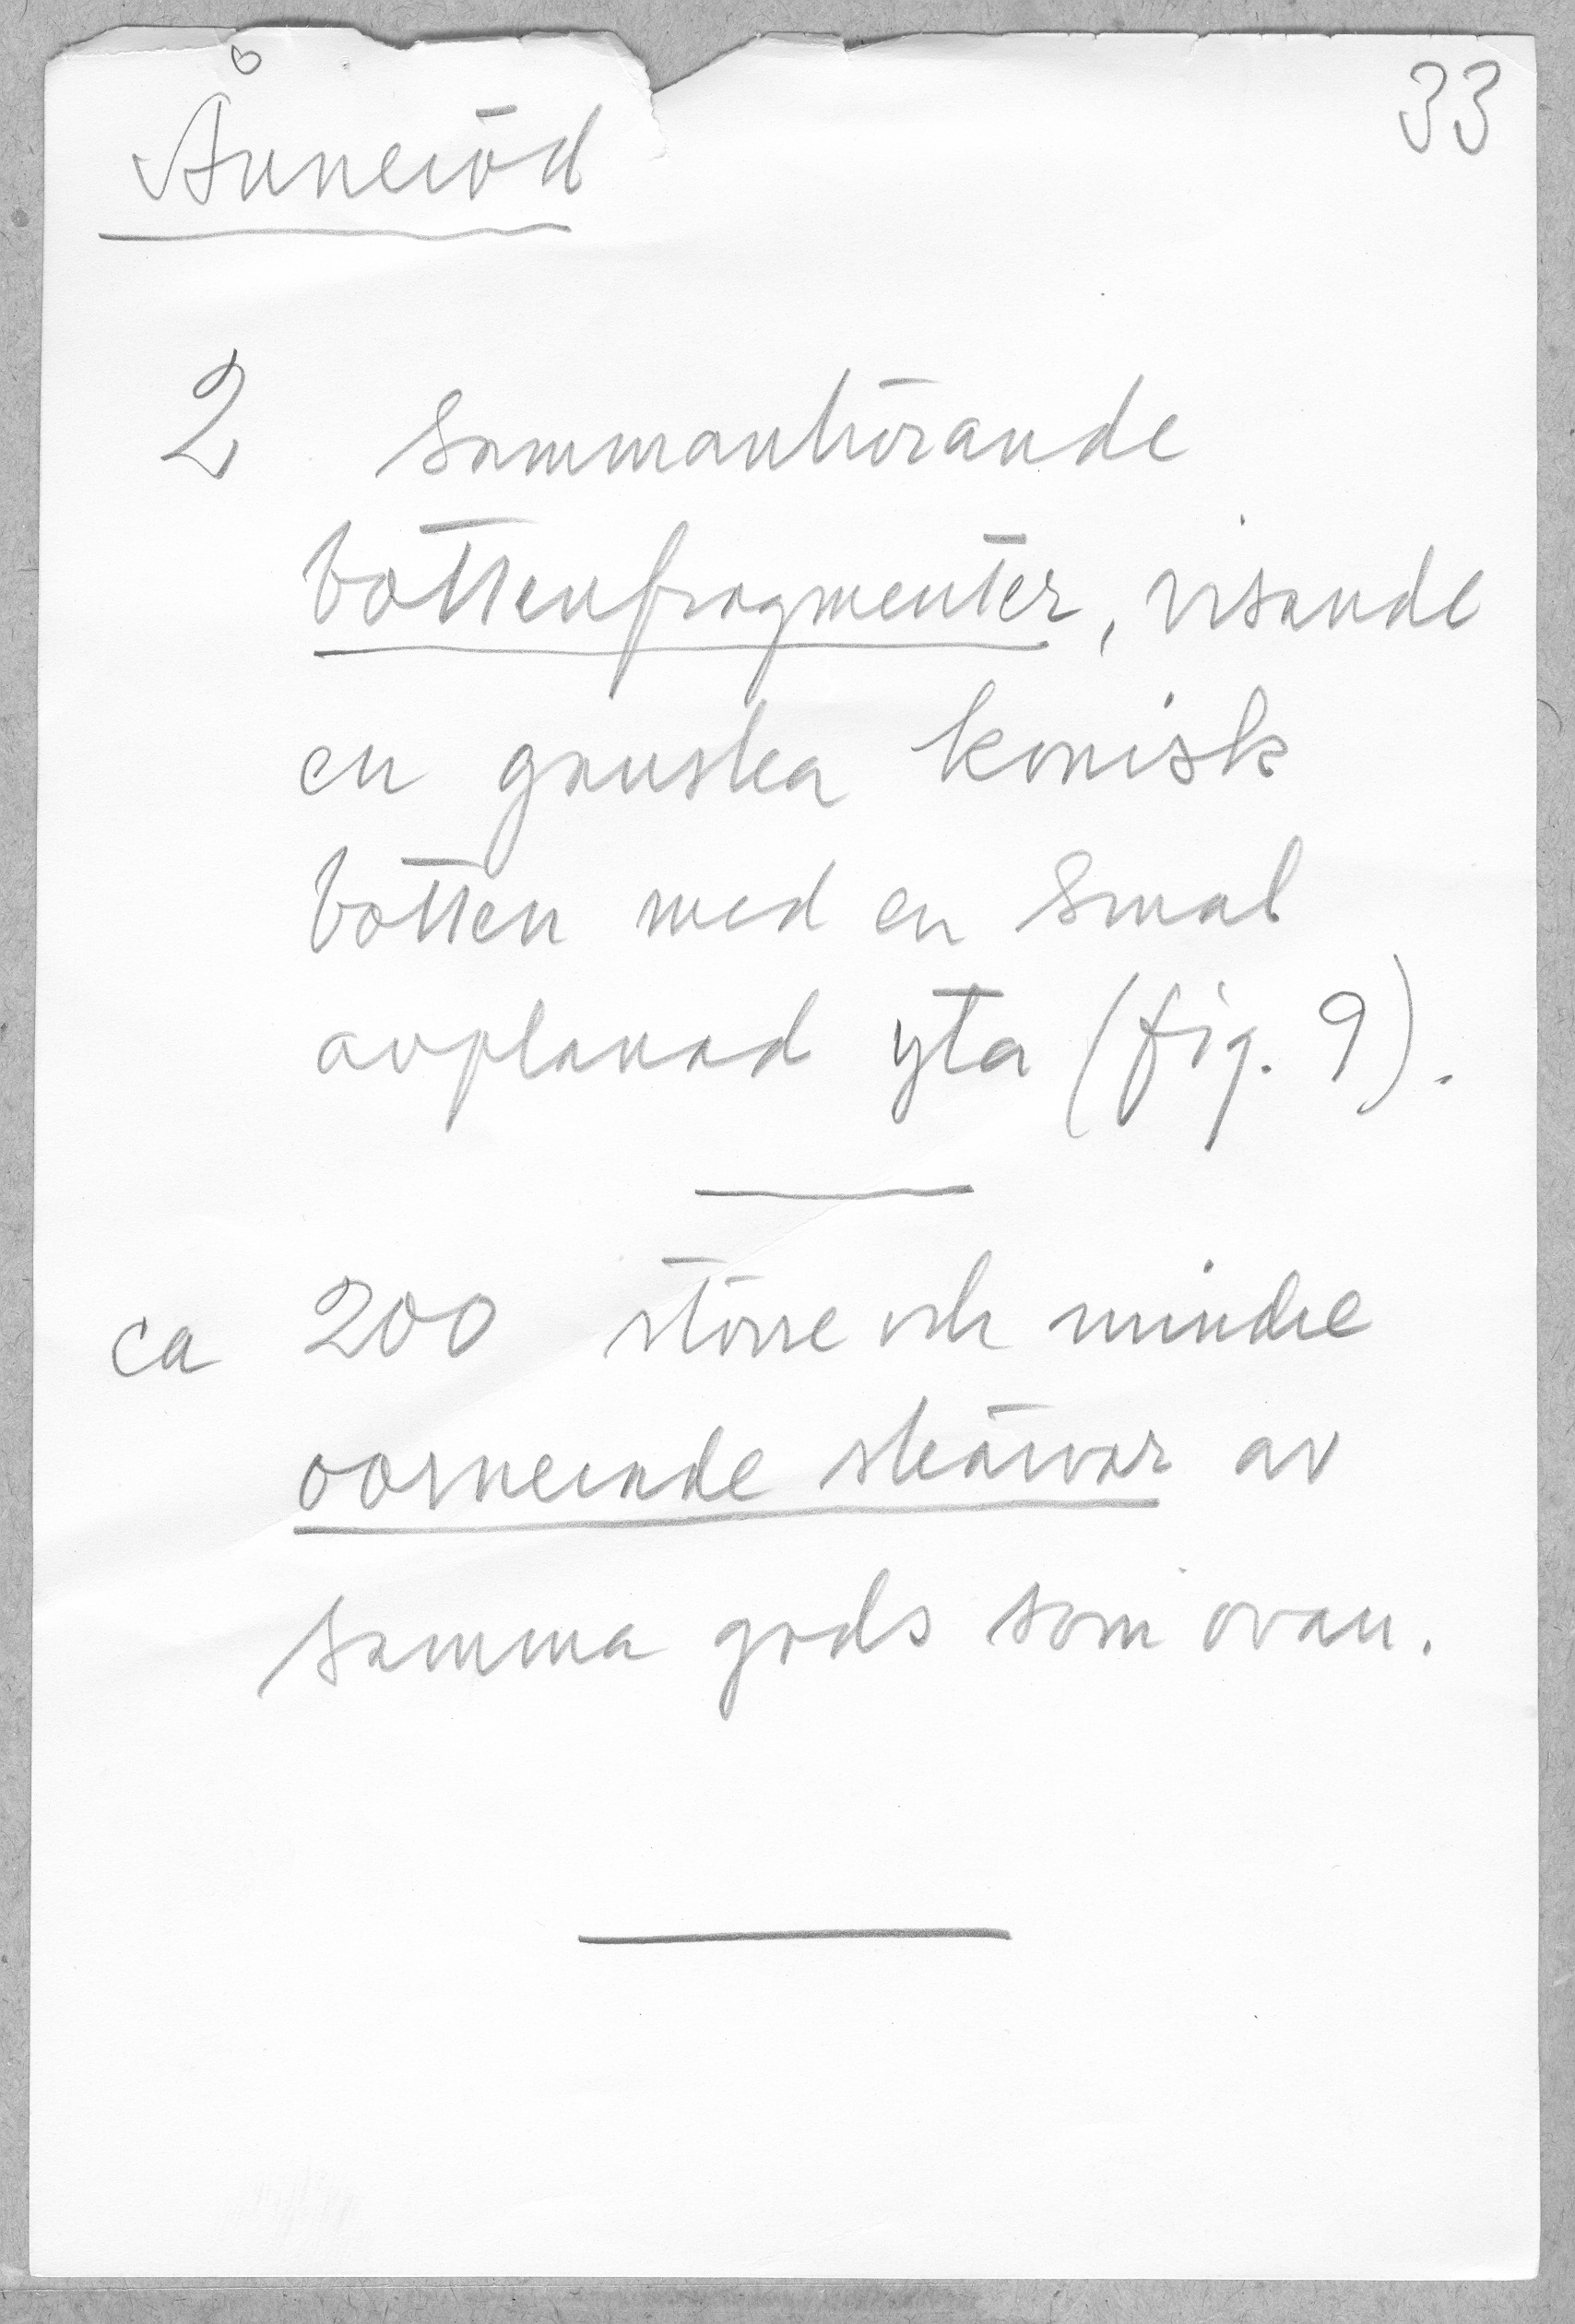 33
Ånneröd
2 sammanhörande
bottenfragmenter, visande
en ganska konisk
botten med en smal
avplanad yta (fig. 9).
ca 200 större och mindre
oornerade skärvor av
samma gods som ovan.